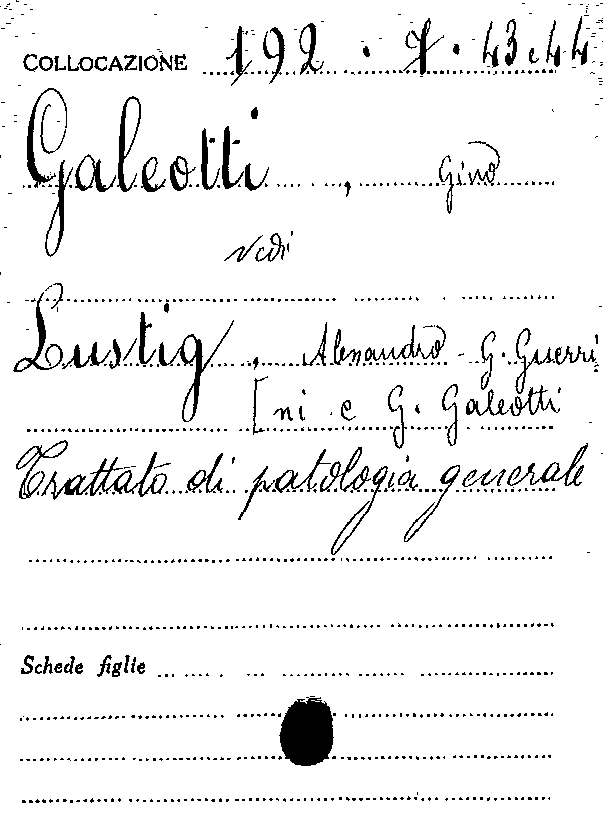 COLLOCAZIONE 192 . 7 . 43.44
Galeotti , Gino
Vedi
Lustig , Alessandro - G. Guerri
[ni e G. Galeotti
Trattato di patologia generale
Schede figlie